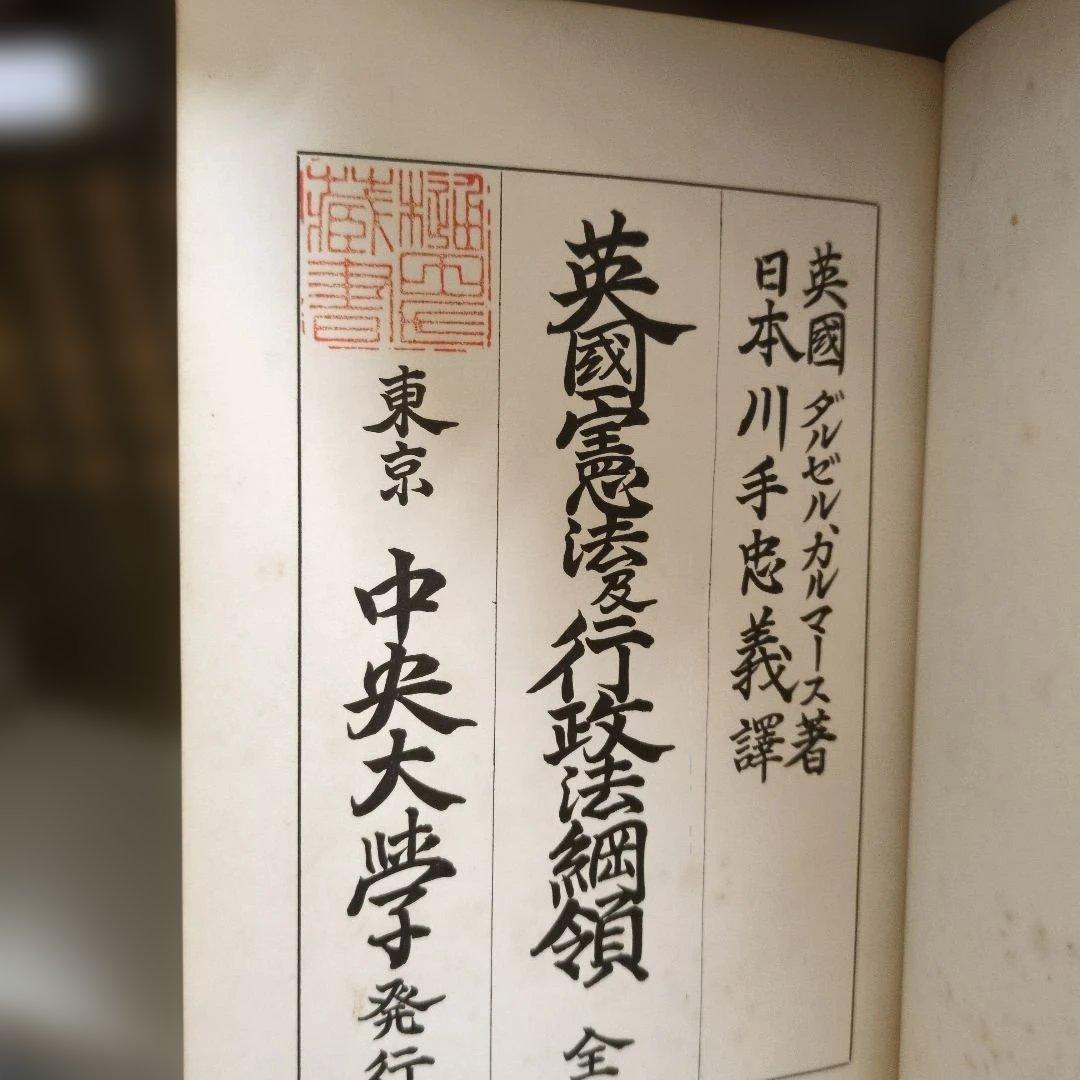 英國 ダルゼル、カルマース著
日本 川手忠義譯
英國憲法及行政法綱領 全
藏書
東京 中央大學発行